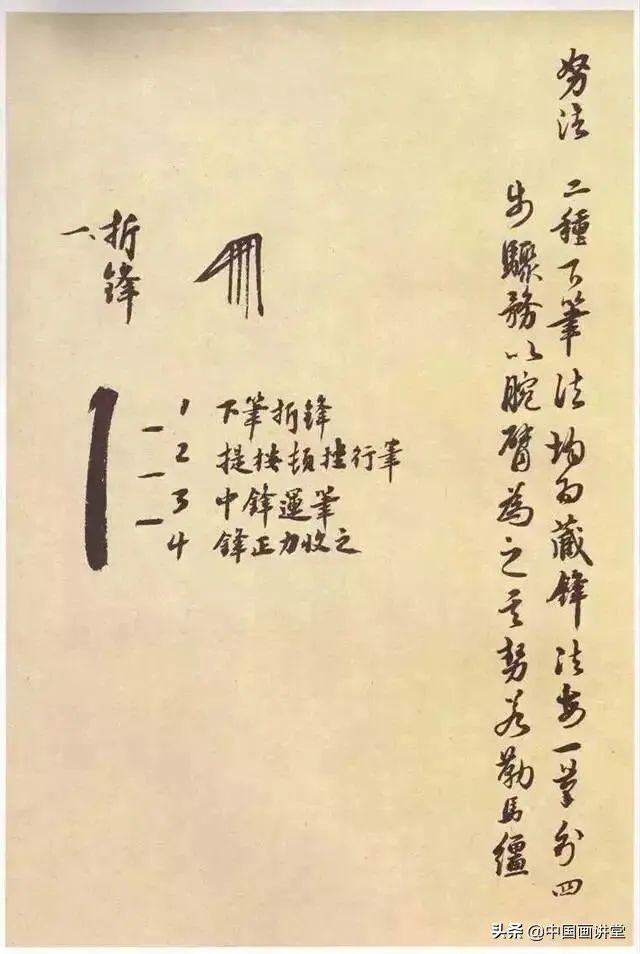 努法 二種下筆法均為藏鋒法每一筆分四
步驟務以腕臂為之其努若勒馬韁
一、折鋒
1 下筆折鋒
2 提按頓挫行筆
3 中鋒運筆
4 鋒正力收之
头条 @中国画讲堂